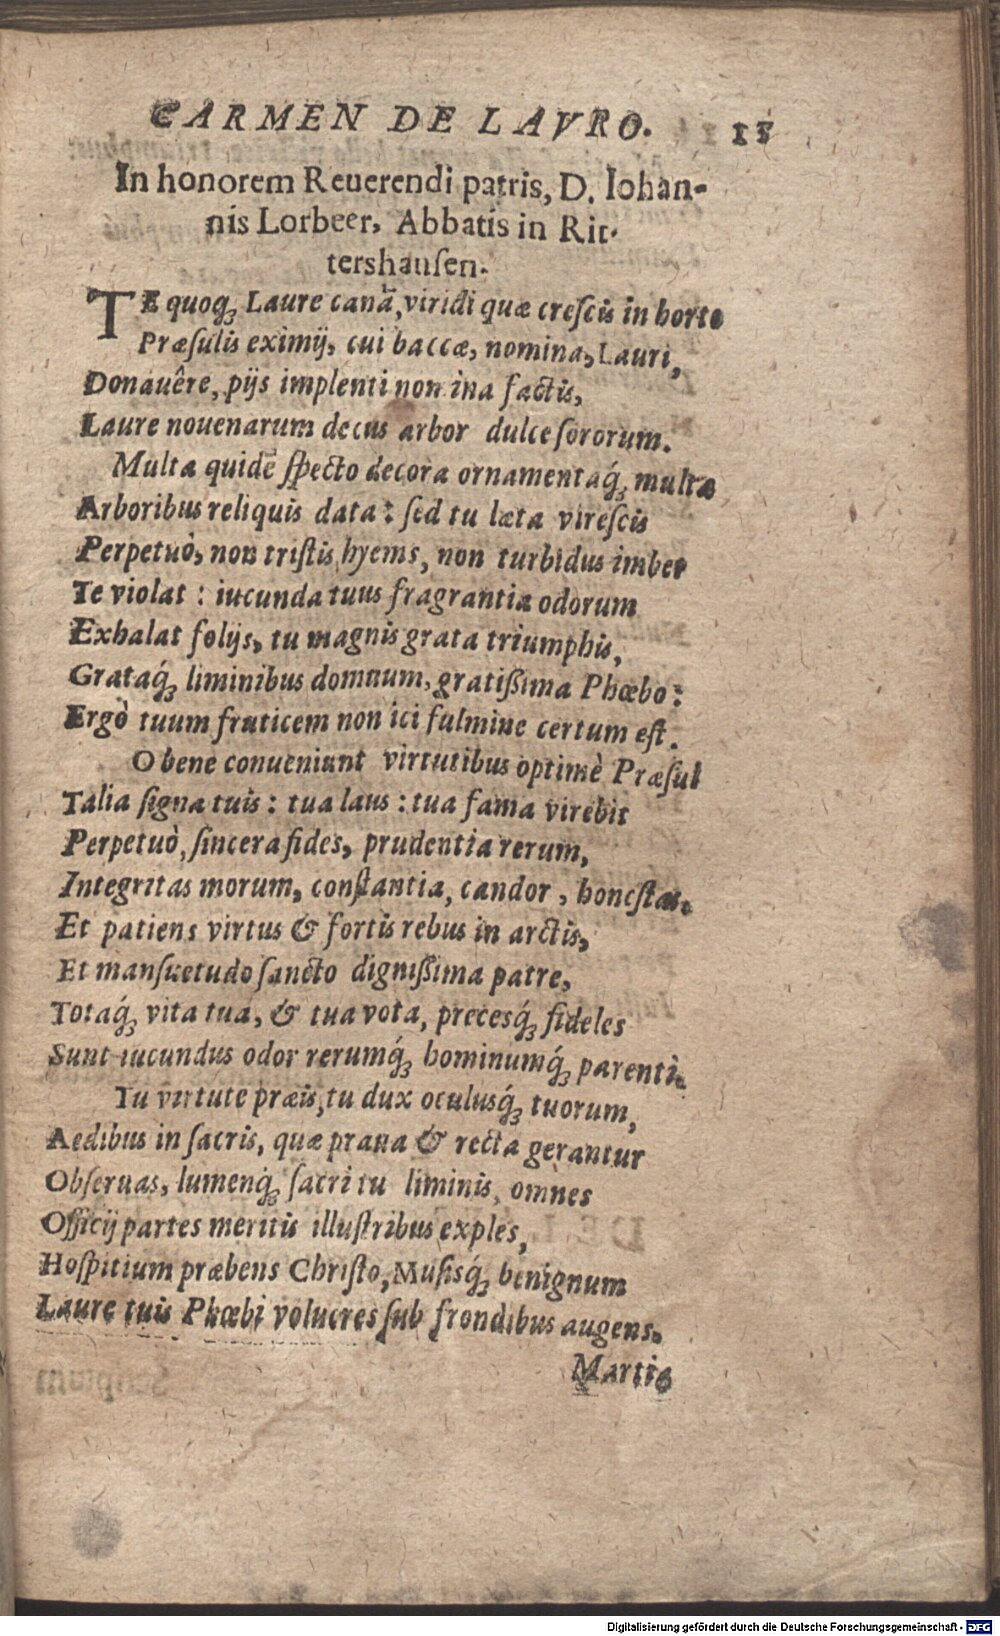 CARMEN DE LAVRO. 15
In honorem Reuerendi patris, D. Iohan-
nis Lorbeer, Abbatis in Rit-
tershausen.
TE quoq; Laure canā, viridi quæ crescis in horto
Præsulis eximij, cui baccæ, nomina, Lauri,
Donauêre, pijs implenti nomina factis,
Laure nouenarum decus arbor dulce sororum.
Multa quidē specto decora ornamentaq́; multæ
Arboribus reliquis data: sed tu læta virescis
Perpetuò, non tristis hyems, non turbidus imber
Te violat: iucunda tuus fragrantia odorum
Exhalat folijs, tu magnis grata triumphis,
Grataq́; liminibus domnum, gratißima Phœbo:
Ergò tuum fruticem non ici fulmine certum est.
O bene conueniunt virtutibus optimè Præsul
Talia signa tuis: tua laus: tua fama virebit
Perpetuò, sincera fides, prudentia rerum,
Integritas morum, constantia, candor, honestas,
Et patiens virtus & fortis rebus in arctis,
Et mansuetudo sancto dignißima patre,
Totaq́; vita tua, & tua vota, precesq́; fideles
Sunt iucundus odor rerumq́; hominumq́; parenti.
Tu virtute præis, tu dux oculusq́; tuorum,
Aedibus in sacris, quæ praua & recta gerantur
Obseruas, lumenq́; sacri tu liminis, omnes
Officij partes meritis illustribus exples,
Hospitium præbens Christo, Musisq́; benignum
Laure tuis Phœbi volucres sub frondibus augens.
Martia
Digitalisierung gefördert durch die Deutsche Forschungsgemeinschaft - DFG